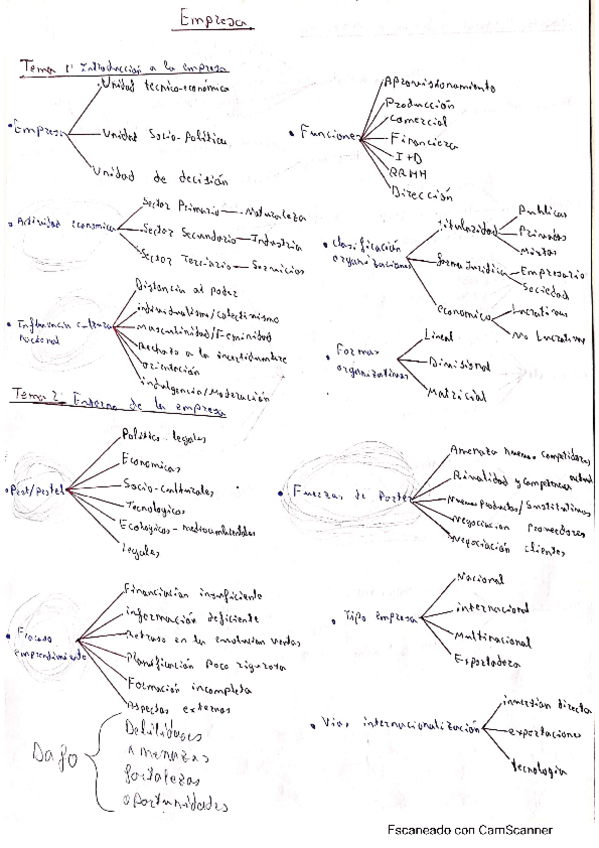 Empresa
Tema 1: Introducción a la empresa
• Empresa
Unidad tecnico-económica
Unidad Socio-Politica
Unidad de decisión
• Funciones
Aprovisionamiento
Producción
Comercial
Financiera
I+D
RRHH
Dirección
• Actividad economica
Sector Primario — Naturaleza
Sector Secundario — Industria
Sector Terciario — Servicios
• Clasificación organizaciones
titularidad
Publicas
Privadas
Mixtas
forma Juridica
Empresario
Sociedad
economico
Lucrativas
No Lucrativas
• Influencia cultura nacional
Distancia al poder
individualismo/colectivismo
Masculinidad/Feminidad
Rechazo a la incertidumbre
orientación
indulgencia/Moderación
• Formas organizativas
Lineal
Divisional
Matricial
Tema 2: Entorno de la empresa
• Pest/pestel
Politico-legales
Economicos
Socio-culturales
Tecnologicos
Ecologicos-medioambientales
legales
• Fuerzas de Porter
Amenaza nuevos competidores
Rivalidad y competencia actual
Nuevos productos/Sustitutivos
Negociacion Proveedores
Negociación clientes
• Fracaso emprendimiento
Financiación insuficiente
información deficiente
Retraso en la evolucion ventas
Planificación poco rigurosa
Formación incompleta
Aspectos externos
• Tipo empresa
Nacional
internacional
Multinacional
Exportadora
Dafo
Debilidades
Amenazas
fortalezas
oportunidades
• Vias internacionalización
inversion directa
exportaciones
tecnologia
Escaneado con CamScanner